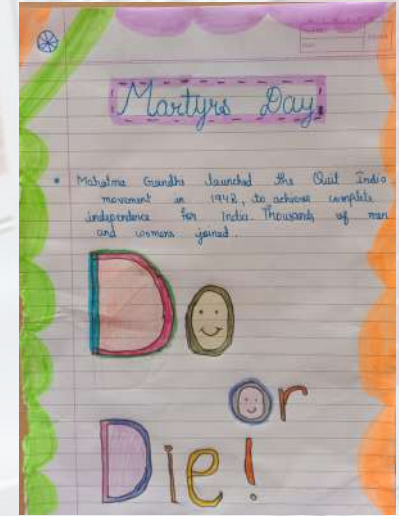 Martyrs Day
• Mahatma Gandhi launched the Quit India
movement in 1942, to achieve complete
independence for India. Thousands of men
and womens joined.
Do
or
Die!